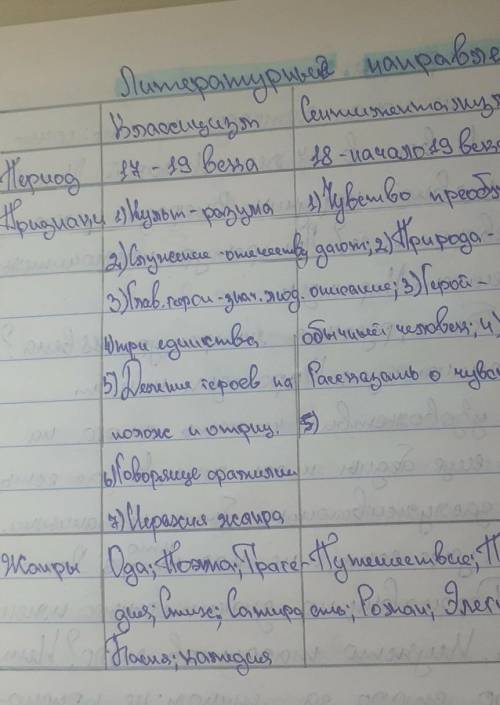 Литературные направле
Классицизм Сентиментализм
Период 17-19 века 18-начало 19 века
Признаки 1) Культ-разума 1) Чувство преоб
2) Служение-отечеству дают; 2) Природа-
3) Глав. герои-знат. люд. описание; 3) Герой-
4) три единства обычный человек; 4)
5) Деление героев на Рассказать о чувс
полож и отриц. 5)
6) Говорящие фамилии
7) Иерархия жанра
Жанры Ода; Поэма; Траге- Путешествие; П
дия; Стих; Сатира Роман; Элеги
Басня; камедия